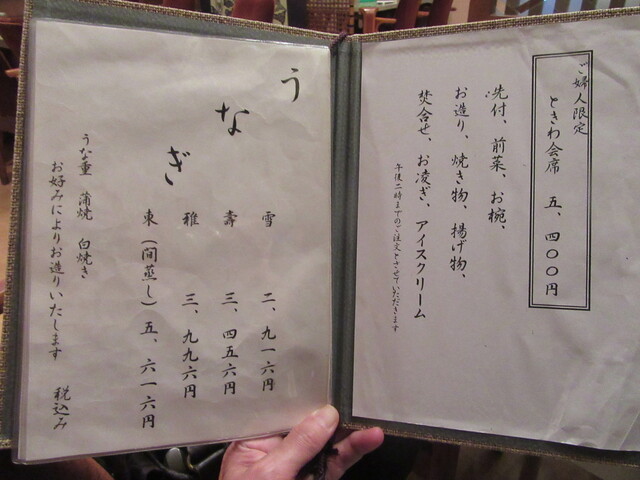 ご婦人限定
ときわ会席 五、四〇〇円
先付、前菜、お椀、
お造り、焼き物、揚げ物、
焚合せ、お凌ぎ、アイスクリーム
午後二時までのご注文とさせていただきます
うなぎ
雪 二、九一六円
壽 三、四五六円
雅 三、九九六円
東(間蒸し) 五、六一六円
うな重 蒲焼 白焼き
お好みによりお造りいたします 税込み